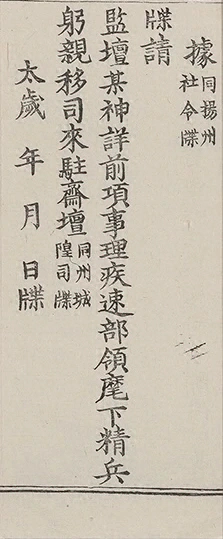 據同揚州社令牒
牒請
監壇某神詳前項事理疾速部領麾下精兵
躬親移司來駐齋壇同州城隍司牒
太歲 年 月 日牒